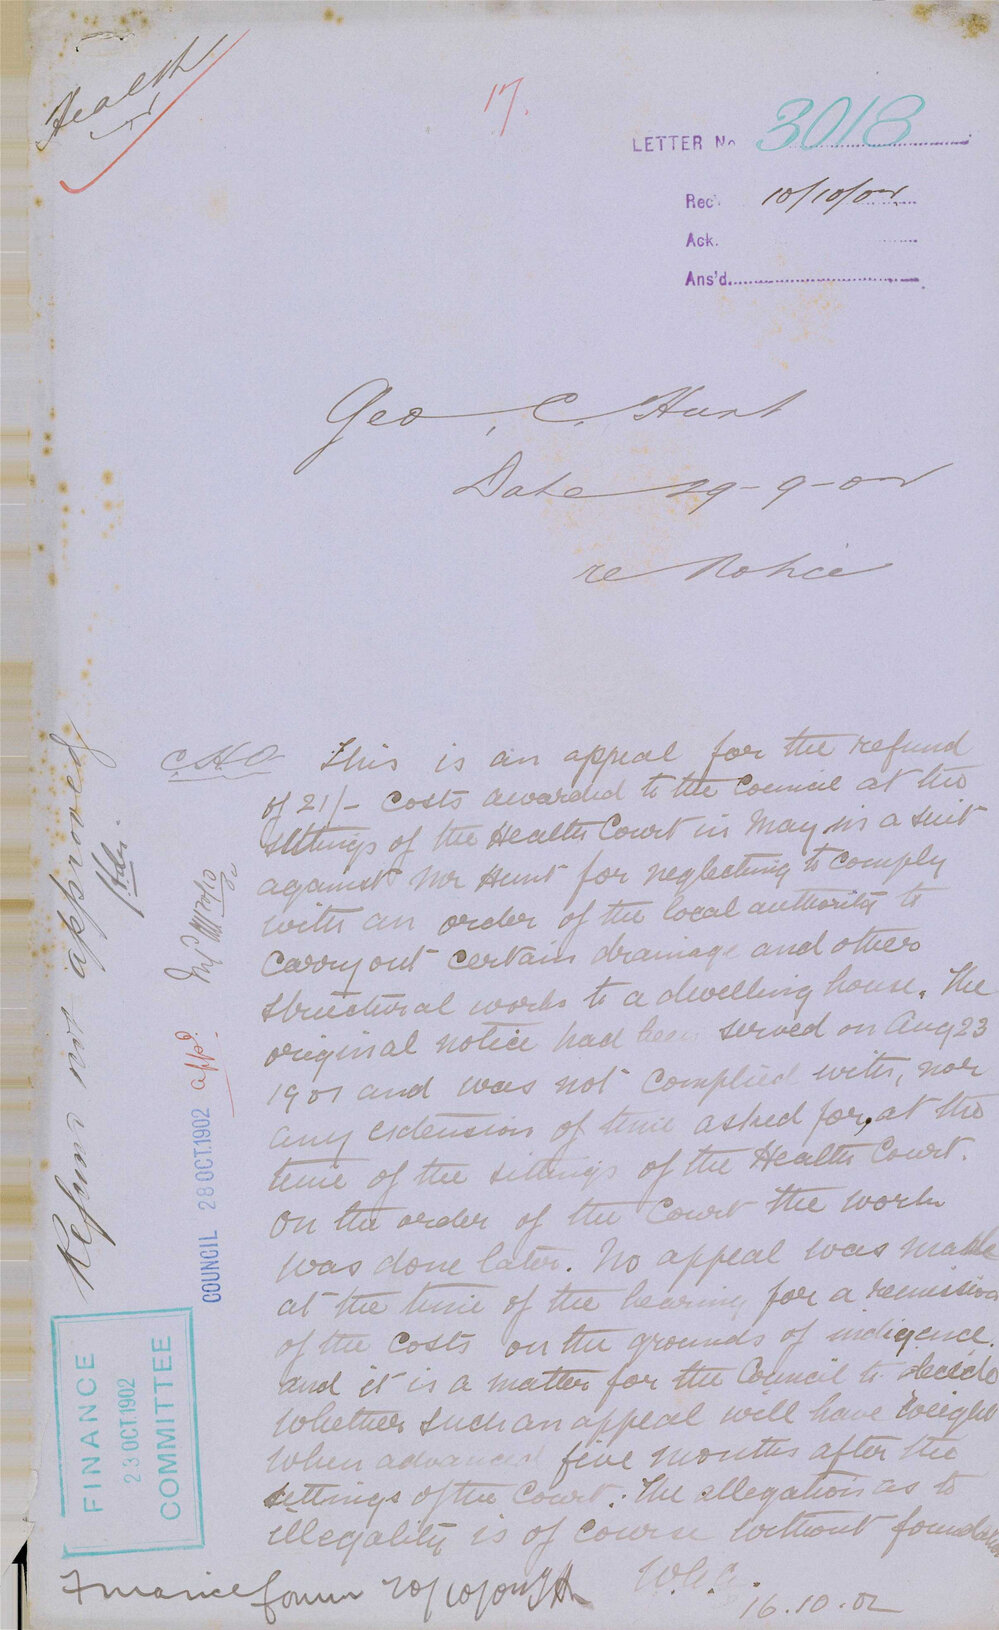 Health
17.
LETTER No 3018
Rec'd 10/10/02
Ack.
Ans'd
Geo. C. Hunt
Date 29-9-02
re Notice
C.H.O. This is an appeal for the refund
of 21/- costs awarded to the Council at the
sittings of the Health Court in May in a suit
against Mr Hunt for neglecting to comply
with an order of the local authority to
carry out certain drainage and other
structural works to a dwelling house. The
original notice had been served on Aug 23
1901 and was not complied with, nor
any extension of time asked for, at the
time of the sittings of the Health Court.
On the order of the Court the work
was done later. No appeal was made
at the time of the hearing for a remission
of the costs on the grounds of indigence.
and it is a matter for the Council to decide
whether such an appeal will have weight
when advanced five months after the
sittings of the Court. The allegation as to
illegality is of course without foundation
16.10.02
Refund not approved
COUNCIL 28 OCT. 1902 appd.
FINANCE
23 OCT. 1902
COMMITTEE
Finance Comm 20/10/02